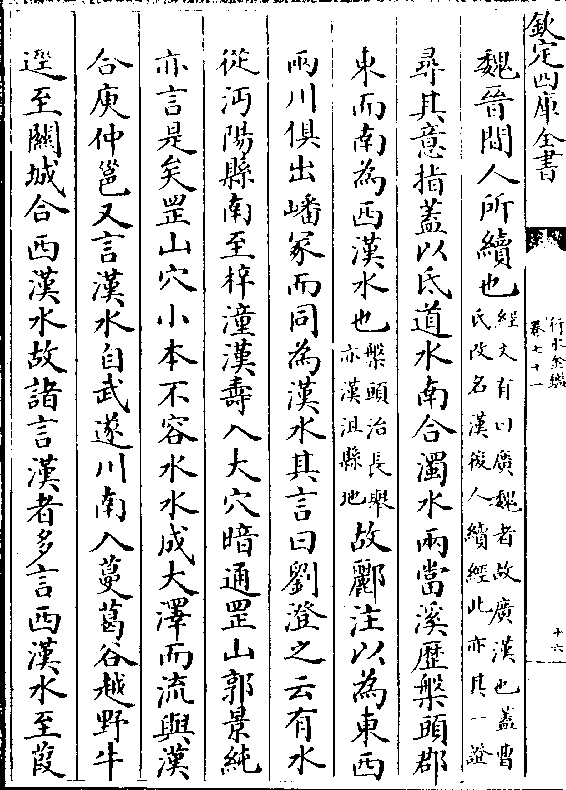 欽定四庫全書
行水金鑑
卷七十一
十六
魏晉間人所續也經文有曰廣魏者故廣漢也蓋曹氏改名漢後人續經此亦其一證
尋其意指蓋以氐道水南合濁水兩當溪歷槃頭郡
東而南為西漢水也槃頭治長舉亦漢沮縣地故酈注以為東西
兩川俱出嶓冢而同為漢水其言曰劉澄之云有水
從沔陽縣南至梓潼漢壽入大穴暗通罡山郭景純
亦言是矣罡山穴小本不容水水成大澤而流與漢
合庾仲邕又言漢水自武遂川南入蔓葛谷越野牛
逕至關城合西漢水故諸言漢者多言西漢水至葭